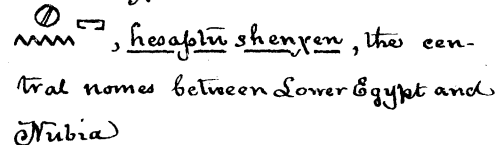 , hesaptū shenχen, the cen-
tral nomes between Lower Egypt and
Nubia